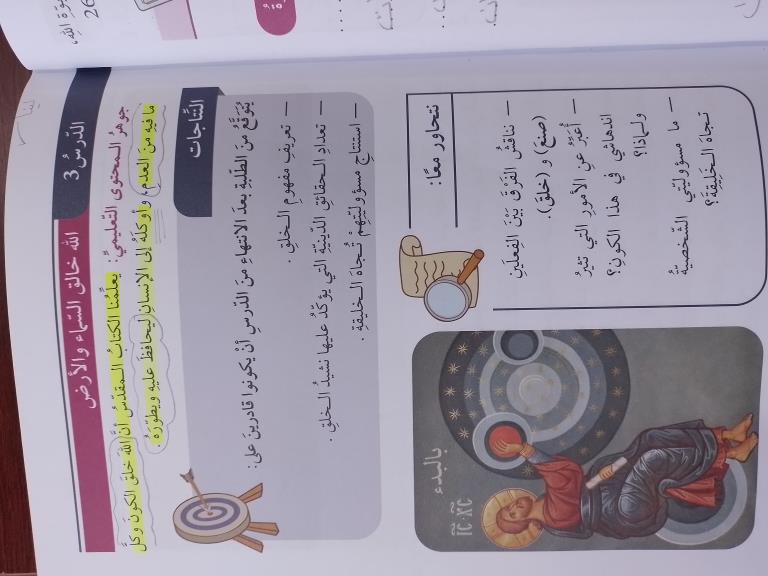 الدّرسُ 3
الله خالق السّماء والأرض
جوهرُ المحتوى التعليميّ: يعلّمُنا الكتابُ المقدّسُ أنَّ الله خلقَ الكونَ وكلَّ
ما فيه منَ العدمِ، وأوكلَهُ إلى الإنسانِ ليحافظَ عليهِ ويطوّرَهُ.
النّتاجات
يُتَوقَّعُ منَ الطّلبةِ بعدَ الانتهاءِ منَ الدّرسِ أنْ يكونوا قادرينَ على:
— تعريفِ مفهومِ الخلقِ.
— تعدادِ الحقائقِ الدّينيّةِ التي يؤكّدُ عليها نشيدُ الخلقِ.
— استنتاجِ مسؤوليّتِهِمْ تُجاهَ الخليقةِ.
نتحاور معًا:
— نناقشُ الفَرْقَ بَيْنَ الفِعلَينِ
(صنعَ) و (خلقَ).
— أُعَبِّرُ عنِ الأمورِ التي تثيرُ
اندهاشي في هذا الكونِ؟
ولماذا؟
— ما مسؤوليّتي الشّخصيّةُ
تجاهَ الخليقةِ؟
بالبدء
IC XC
26